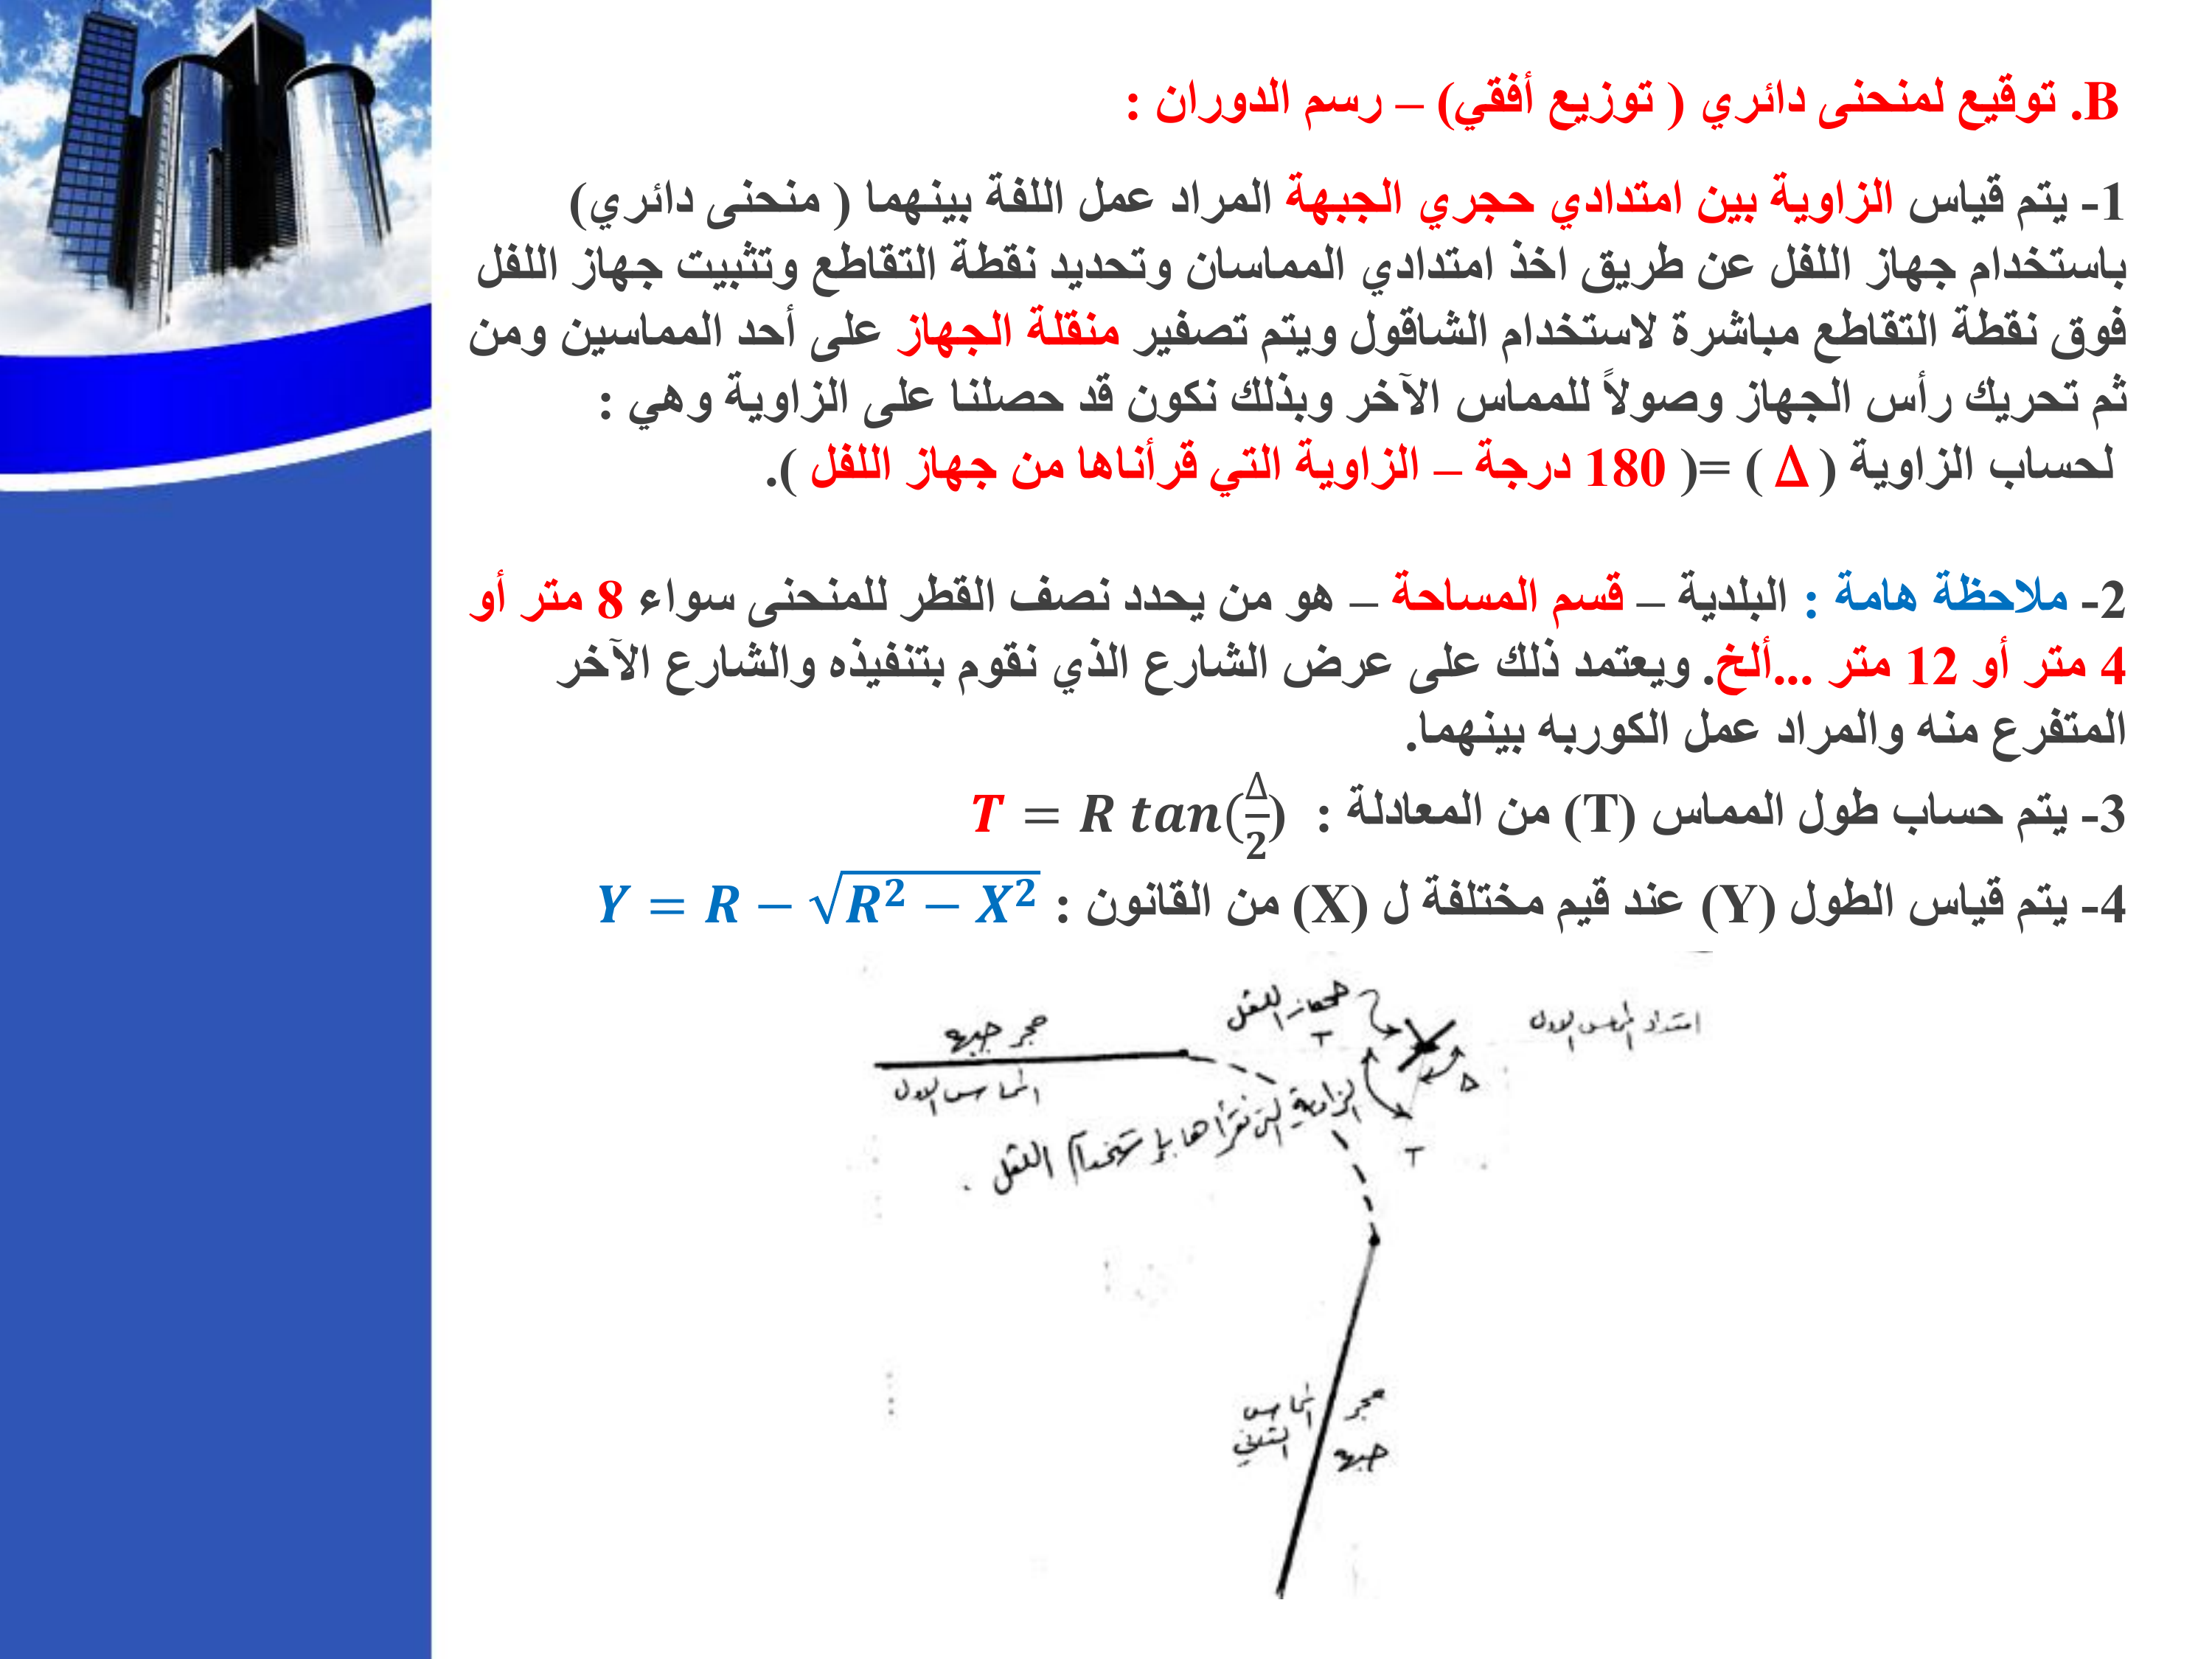 B. توقيع لمنحنى دائري ( توزيع أفقي) – رسم الدوران :
1- يتم قياس الزاوية بين امتدادي حجري الجبهة المراد عمل اللفة بينهما ( منحنى دائري)
باستخدام جهاز اللفل عن طريق اخذ امتدادي المماسان وتحديد نقطة التقاطع وتثبيت جهاز اللفل
فوق نقطة التقاطع مباشرة لاستخدام الشاقول ويتم تصفير منقلة الجهاز على أحد المماسين ومن
ثم تحريك رأس الجهاز وصولاً للمماس الآخر وبذلك نكون قد حصلنا على الزاوية وهي :
لحساب الزاوية ( Δ ) =( 180 درجة – الزاوية التي قرأناها من جهاز اللفل ).
2- ملاحظة هامة : البلدية – قسم المساحة – هو من يحدد نصف القطر للمنحنى سواء 8 متر أو
4 متر أو 12 متر ...ألخ. ويعتمد ذلك على عرض الشارع الذي نقوم بتنفيذه والشارع الآخر
المتفرع منه والمراد عمل الكوربه بينهما.
3- يتم حساب طول المماس (T) من المعادلة : T = R tan(Δ/2)
4- يتم قياس الطول (Y) عند قيم مختلفة ل (X) من القانون : Y = R − √(R² − X²)
جهاز اللفل
T
امتداد المماس الاول
حجر جبهه
المماس الاول
Δ
الزاوية التي نقرأها بإستخدام اللفل .
T
حجر
جبهه
المماس
الثاني